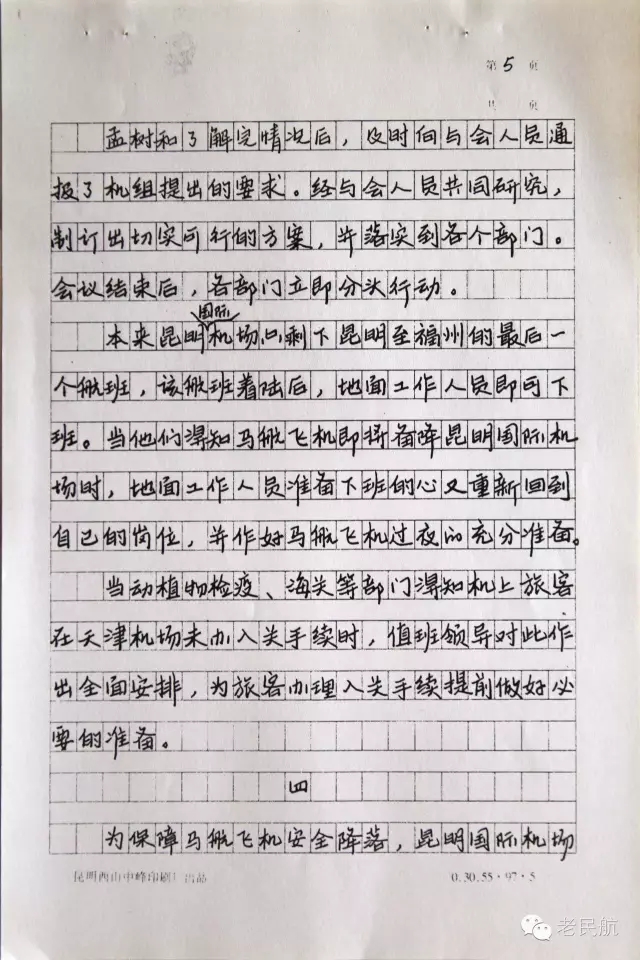 第5页
共 页
孟树和了解完情况后，及时向与会人员通
报了机组提出的要求。经与会人员共同研究，
制订出切实可行的方案，并落实到各个部门。
会议结束后，各部门立即分头行动。
本来昆明国际机场只剩下昆明至福州的最后一
个航班，该航班着陆后，地面工作人员即可下
班。当他们得知马航飞机即将备降昆明国际机
场时，地面工作人员准备下班的心又重新回到
自己的岗位，并作好马航飞机过夜的充分准备。
当动植物检疫、海关等部门得知机上旅客
在天津机场未办入关手续时，值班领导对此作
出全面安排，为旅客办理入关手续提前做好必
要的准备。
四
为保障马航飞机安全降落，昆明国际机场
昆明西山中峰印刷厂出品 0.30.55·97·5
老民航